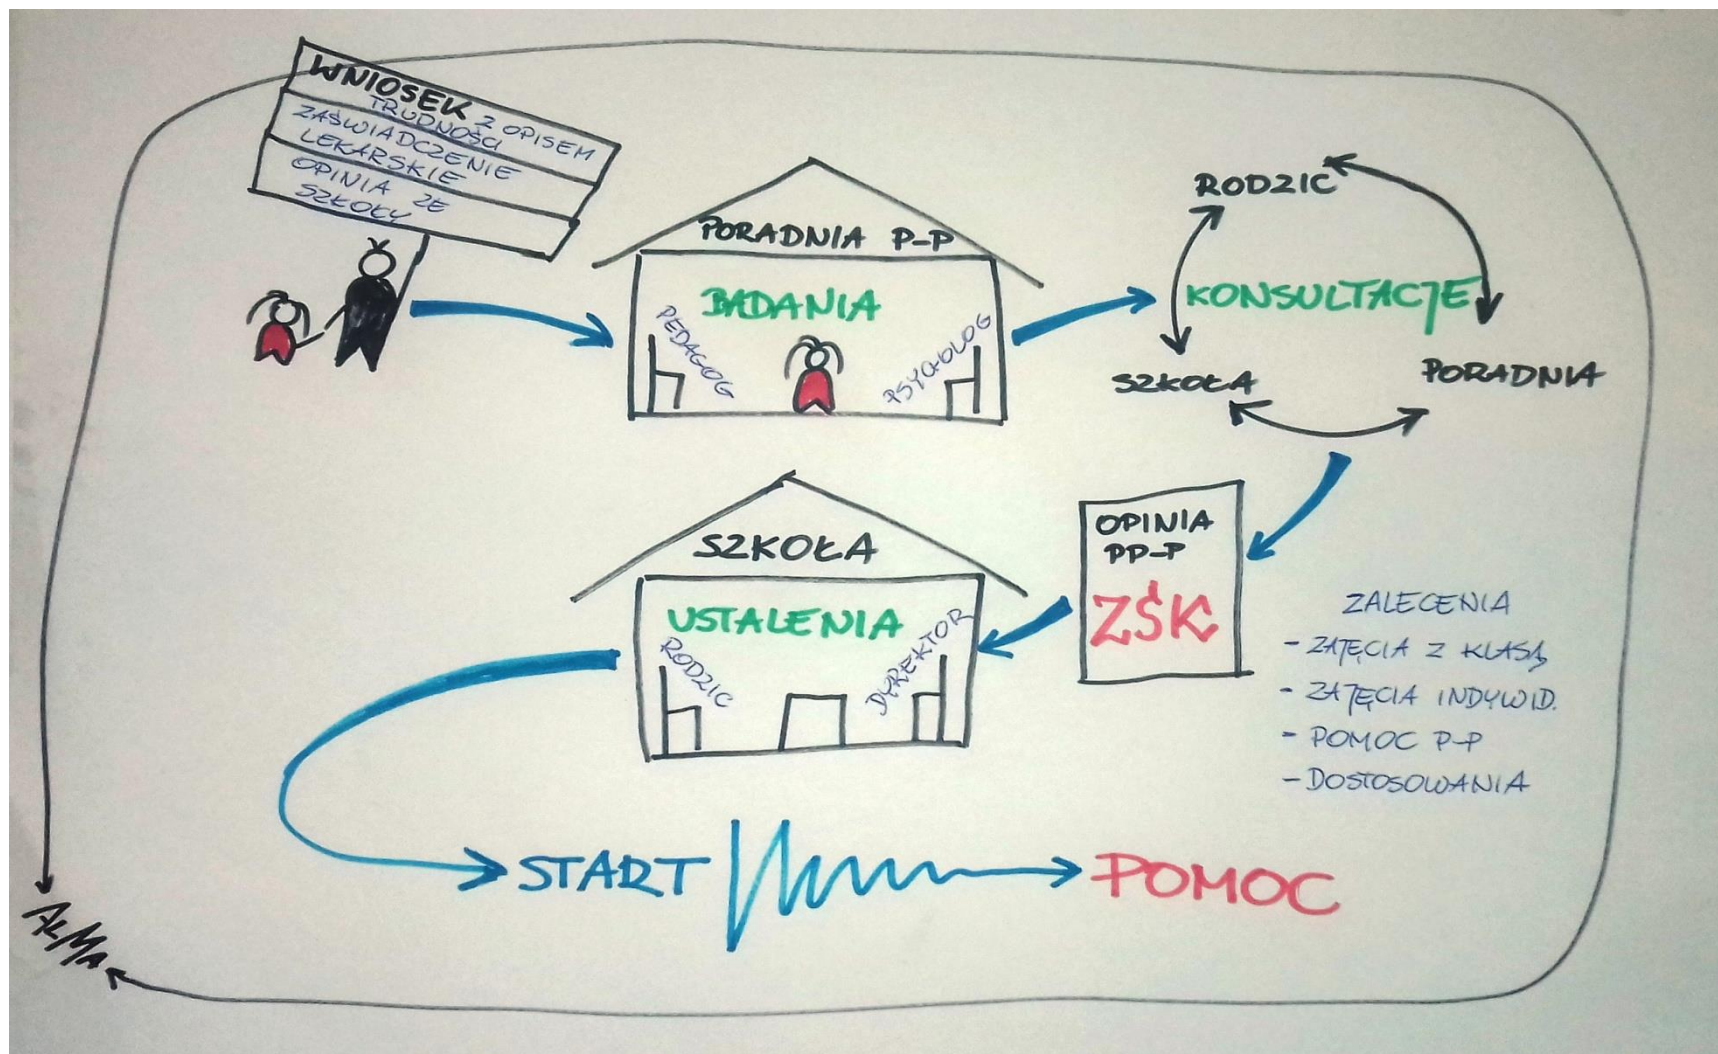 WNIOSEK Z OPISEM
TRUDNOŚCI
ZAŚWIADCZENIE
LEKARSKIE
OPINIA ZE
SZKOŁY
PORADNIA P-P
BADANIA
PEDAGOG
PSYCHOLOG
RODZIC
KONSULTACJE
SZKOŁA
PORADNIA
SZKOŁA
USTALENIA
RODZIC
DYREKTOR
OPINIA
PP-P
ZŚK
ZALECENIA
- ZAJĘCIA Z KLASĄ
- ZAJĘCIA INDYWID.
- POMOC P-P
- DOSTOSOWANIA
START
POMOC